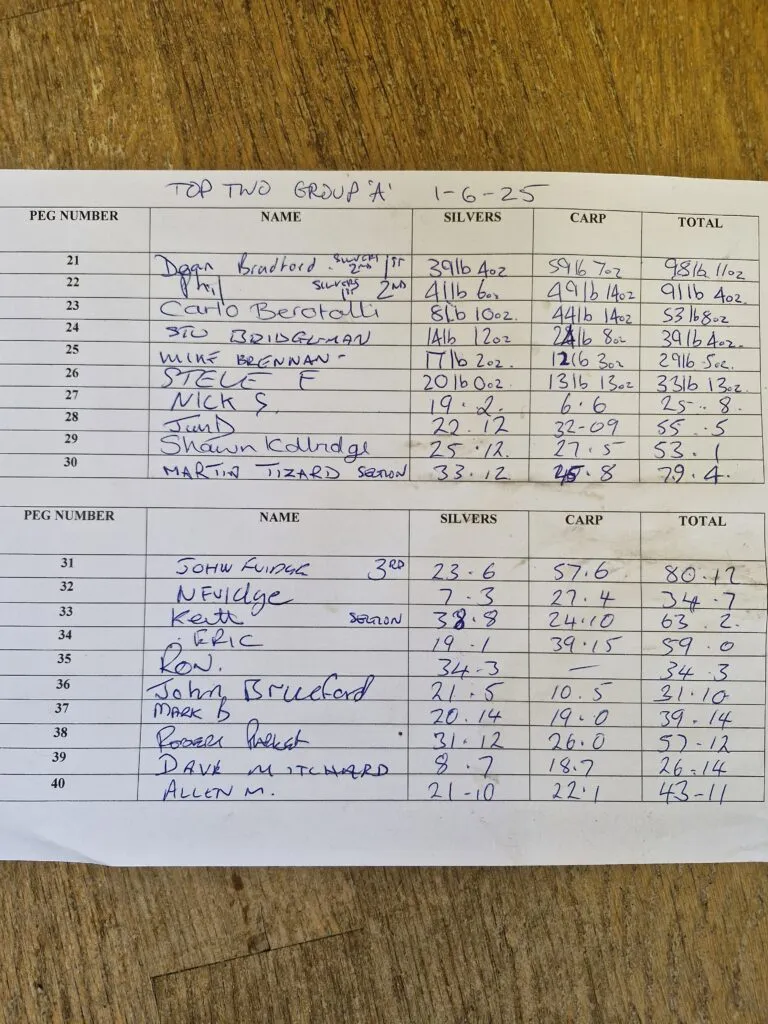 TOP TWO GROUP 'A' 1-6-25
PEG NUMBER NAME SILVERS CARP TOTAL
21 Dean Bradford - SILVERS 2ND 1ST 39lb 4oz 59lb 7oz 98lb 11oz
22 Phil SILVERS 1ST 2ND 41lb 6oz 49lb 14oz 91lb 4oz.
23 Carlo Berotalli 8lb 10oz. 44lb 14oz 53lb 8oz
24 STU BRIDGEMAN 14lb 12oz 24lb 8oz 39lb 4oz.
25 MIKE BRENNAN- 17lb 2oz. 12lb 3oz 29lb 5oz.
26 STEVE F 20lb 0oz. 13lb 13oz 33lb 13oz.
27 NICK S. 19.2. 6.6 25.8.
28 22.12 32-09 55.5
29 Shawn Kittridge 25.12. 27.5 53.1
30 MARTIN TIZARD SECTION 33.12 45.8 79.4.
PEG NUMBER NAME SILVERS CARP TOTAL
31 JOHN FUIDGE 3RD 23.6 57.6. 80.12
32 N FUIDGE 7.3 27.4 34.7
33 Keith SECTION 38.8 24.10 63.2.
34 ERIC 19.1 39.15 59.0
35 RON. 34-3 — 34.3
36 John Brueford 21.5 10.5 31.10
37 MARK B 20.14 19.0 39.14
38 31.12 26.0 57-12
39 DAVE MITCHARD 8.7 18.7 26.14
40 ALLEN M. 21-10 22.1 43-11